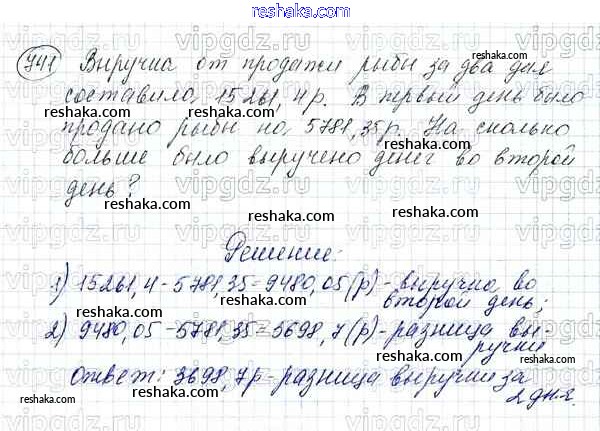 reshaka.com
741 Выручка от продажи рыбы за два дня
составила 15261,4 р. В первый день было
продано рыбы на 5781,35 р. На сколько
больше было выручено денег во второй
день?
Решение:
1) 15261,4-5781,35=9480,05 (р)-выручка во
второй день;
2) 9480,05-5781,35=3698,7 (р)-разница вы-
ручки
Ответ: 3698,7р-разница выручки за
2 дня.
vipgdz.ru
reshaka.com